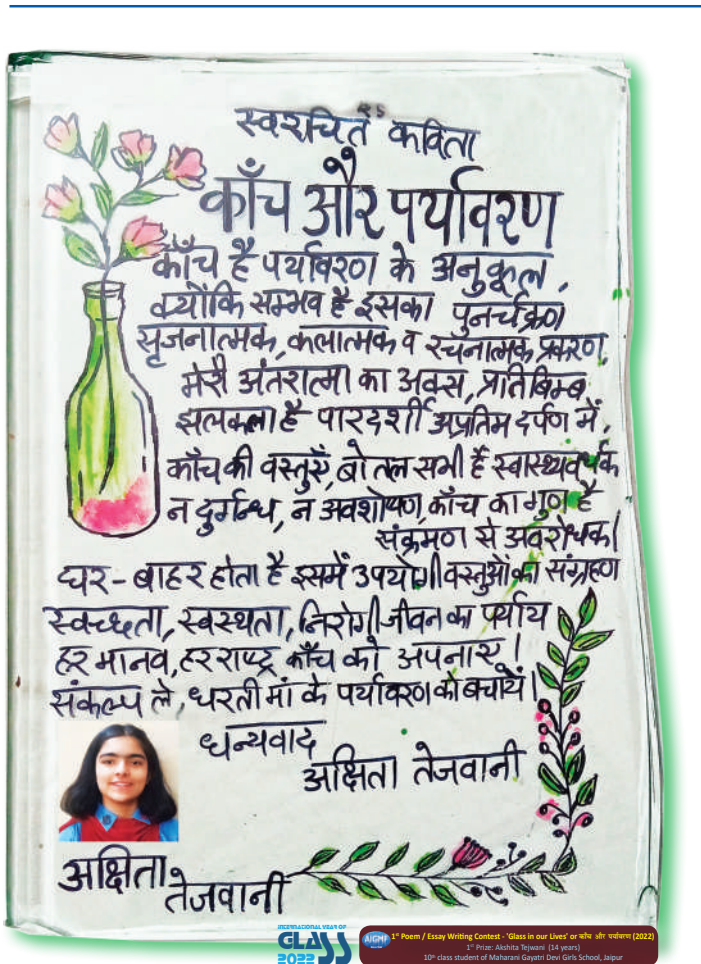 स्वरचित कविता
काँच और पर्यावरण
काँच है पर्यावरण के अनुकूल,
क्योंकि सम्भव है इसका पुनर्चक्रण
सृजनात्मक, कलात्मक व रचनात्मक प्रकरण,
मेरी अंतरात्मा का अक्स, प्रतिबिम्ब
झलकला है पारदर्शी अप्रतिम दर्पण में,
काँच की वस्तुएँ, बोतल सभी हैं स्वास्थ्यवर्धक
न दुर्गन्ध, न अवशोषण, काँच का गुण है
संक्रमण से अवरोधक।
घर-बाहर होता है इसमें उपयोगी वस्तुओं का संग्रहण
स्वच्छता, स्वस्थता, निरोगी जीवन का पर्याय
हर मानव, हर राष्ट्र काँच को अपनाए।
संकल्प ले, धरती मां के पर्यावरण को बचायें।
धन्यवाद
अक्षिता तेजवानी
अक्षिता
तेजवानी
INTERNATIONAL YEAR OF
GLASS
2022
AIGMF
1st Poem / Essay Writing Contest - 'Glass in our Lives' or काँच और पर्यावरण (2022)
1st Prize: Akshita Tejwani (14 years)
10th class student of Maharani Gayatri Devi Girls School, Jaipur